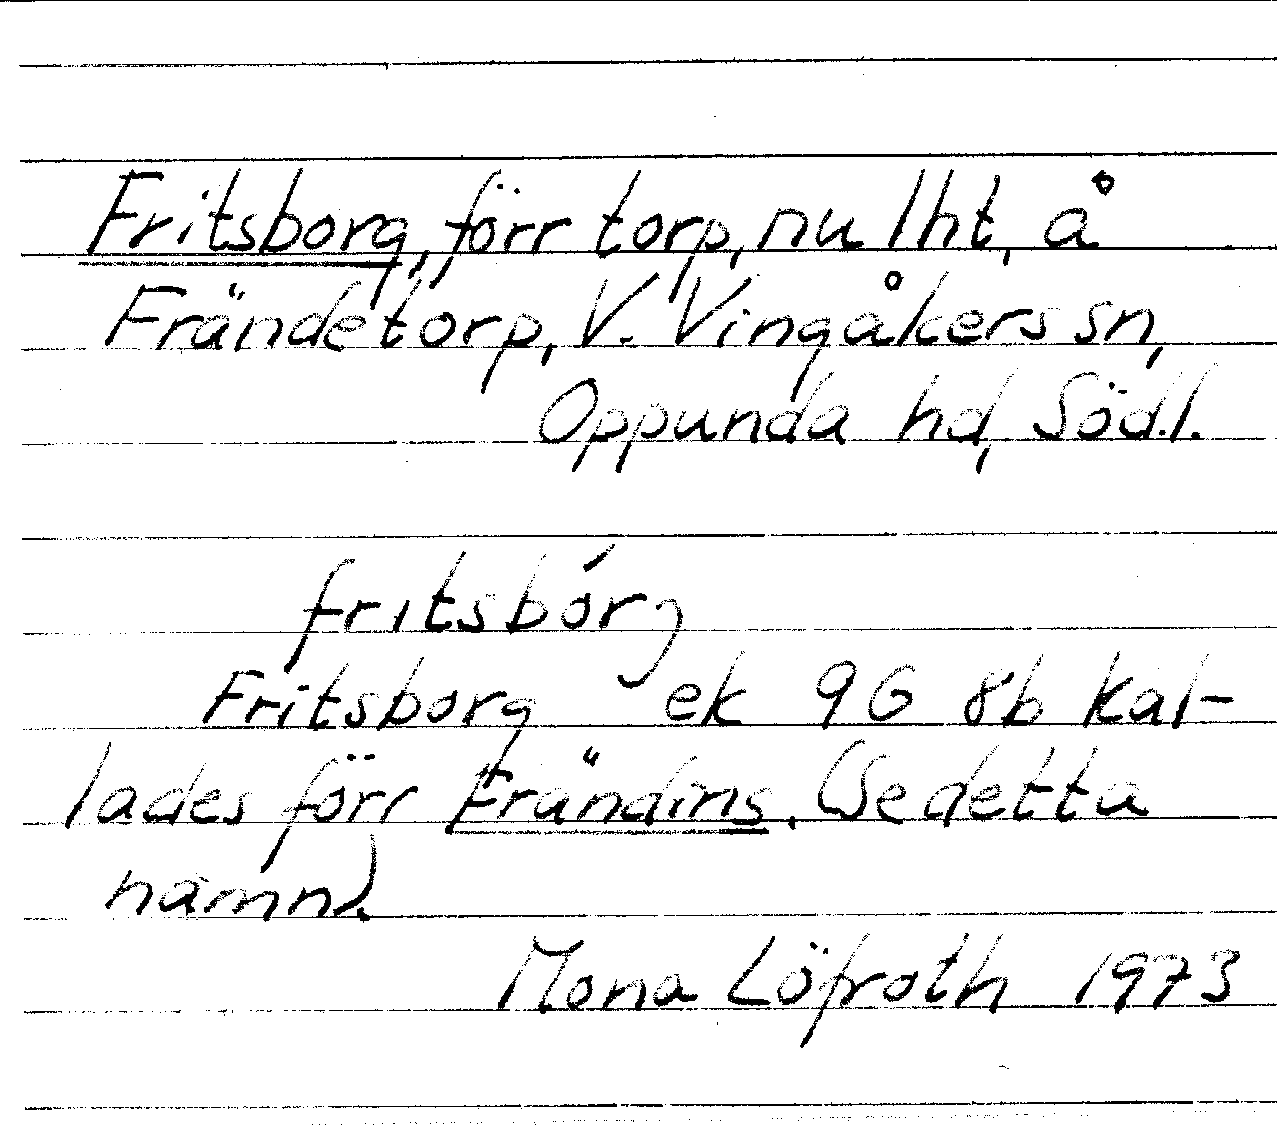 Fritsborg, förr torp, nu lht, å
Frändetorp, V. Vingåkers sn,
Oppunda hd, Södl.
fritsbórj
Fritsborg ek 9G 8b kal-
lades förr Frändins. (Se detta
namn).
Mona Löfroth 1973